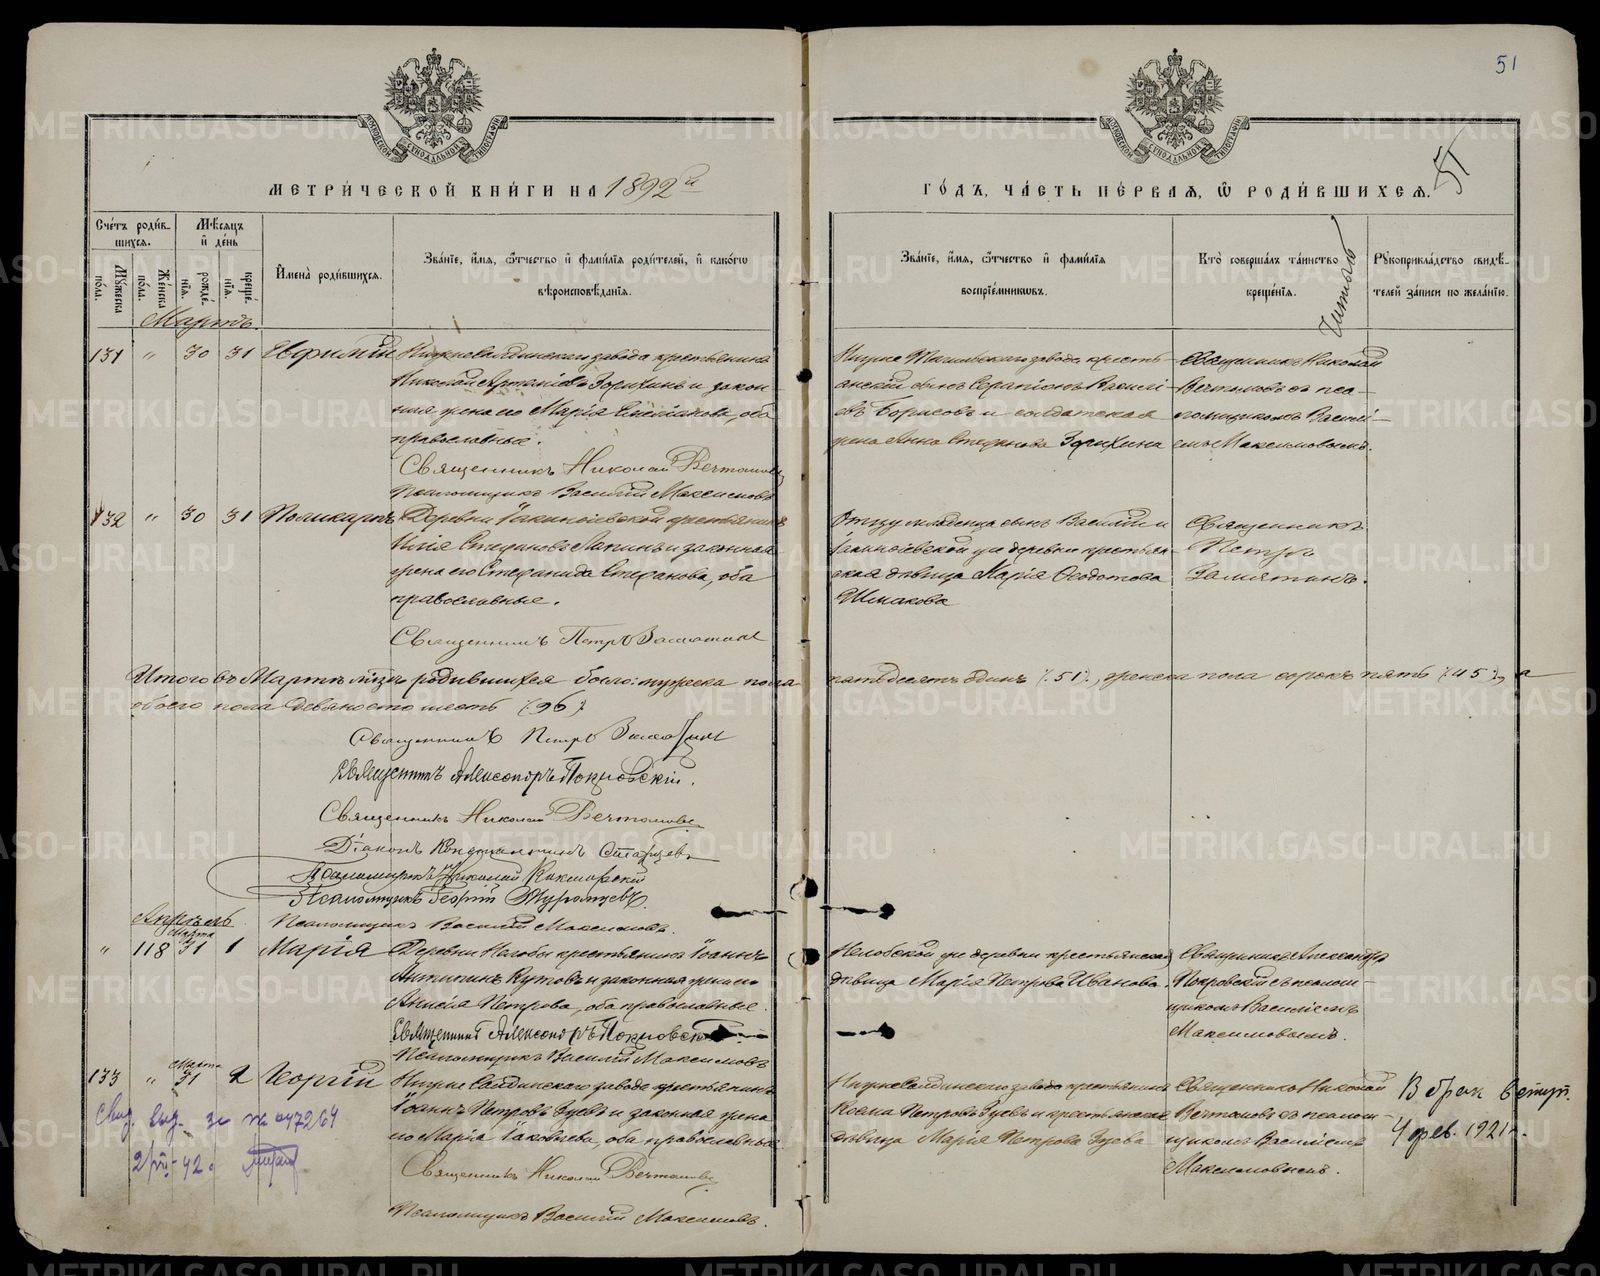 51
51
МОСКОВСКОЙ СѴНОДАЛЬНОЙ ТИПОГРАФІИ
МОСКОВСКОЙ СѴНОДАЛЬНОЙ ТИПОГРАФІИ
МЕТРИ́ЧЕСКОЙ КНИ́ГИ НА 1892й
ГО́ДЪ, ЧА́СТЬ ПЕ́РВАЯ, Ѡ РОДИ́ВШИХСЯ.
Сче́тъ роди́в-
шихся.
Мѣ́сяцъ
и҆ де́нь
Му́жеска по́ла.
Же́нска по́ла.
рожде́нїя.
креще́нїя.
И҆мена̀ роди́вшихся.
Зва́нїе, и҆́мя, ѻ҆́тчество и҆ фами́лїя роди́телей, и҆ како́гѡ
вѣроисповѣ́данїя.
Зва́нїе, и҆́мя, ѻ҆́тчество и҆ фами́лїя
воспрїе́мникѡвъ.
Кто̀ соверша́лъ та́инство
креще́нїя.
Рꙋкоприкла́дство свидѣ́-
телей за́писи по жела́нїю.
Мартъ.
131 " 30 31
Нижнесалдинскаго завода крестьянинъ
Николай Зорихинъ и закон-
ная жена его Марія оба
православные.
Священникъ Николай Вечтомовъ
Псаломщикъ Василій Максимовъ
Нижне Тагильскаго завода кресть-
янскій сынъ Серапіонъ Василі-
евъ Борисовъ и солдатская
жена Анна Стефанова Зорихина
Священникъ Николай
Вечтомовъ съ пса-
ломщикомъ Васілі-
емъ Максимовымъ.
132 " 30 31 Поликарпъ
Деревни крестьянинъ
Илія Стефановъ Лапинъ и законная
жена его Стефанида Стефанова, оба
православные.
Священникъ Петръ Замятинъ
Отцу младенца сынъ Василій и
же деревни крестьян-
ская дѣвица Марія Ѳеодотова
Шмакова
Священникъ
Петръ
Замятинъ.
Итого въ Мартѣ мѣсѣ родившихся было: мужеска пола пятьдесятъ одинъ /51/, женска пола сорокъ пять /45/, а
обоего пола девяносто шесть /96/.
Священникъ Петръ Замятинъ
Священникъ Александръ Покровскій.
Священникъ Николай Вечтомовъ
Діаконъ Константинъ Старцевъ
Псаломщикъ Николай
Псаломщикъ Георгій
Псаломщикъ Василій Максимовъ.
Апрѣль
Марта
" 118 31 1 Марія
Деревни Нелобы крестьянинъ Іоаннъ
Антипинъ Кутовъ и законная жена его
Петрова, оба православные.
Священникъ Александръ Покровскій
Псаломщикъ Василій Максимовъ
Нелобской же деревни крестьянская
дѣвица Марія Петрова Иванова.
Священникъ Александръ
Покровскій съ псалом-
щикомъ Василіемъ
Максимовымъ.
Марта
133 " 31 2 Георгій
Нижне Салдинскаго завода крестьянинъ
Іоаннъ Петровъ Зуевъ и законная жена
его Марія Іаковлева, оба православные
Священникъ Николай Вечтомовъ
Псаломщикъ Василій Максимовъ.
Нижнесалдинскаго завода крестьянинъ
Косма Петровъ Зуевъ и крестьянская
дѣвица Марія Петрова Зуева
Священникъ Николай
Вечтомовъ съ псалом-
щикомъ Василіемъ
Максимовымъ.
В брак вступ.
4 фев. 1921 г.
Свид. выд. за № 047264
2/VII-42.
METRIKI.GASO-URAL.RU